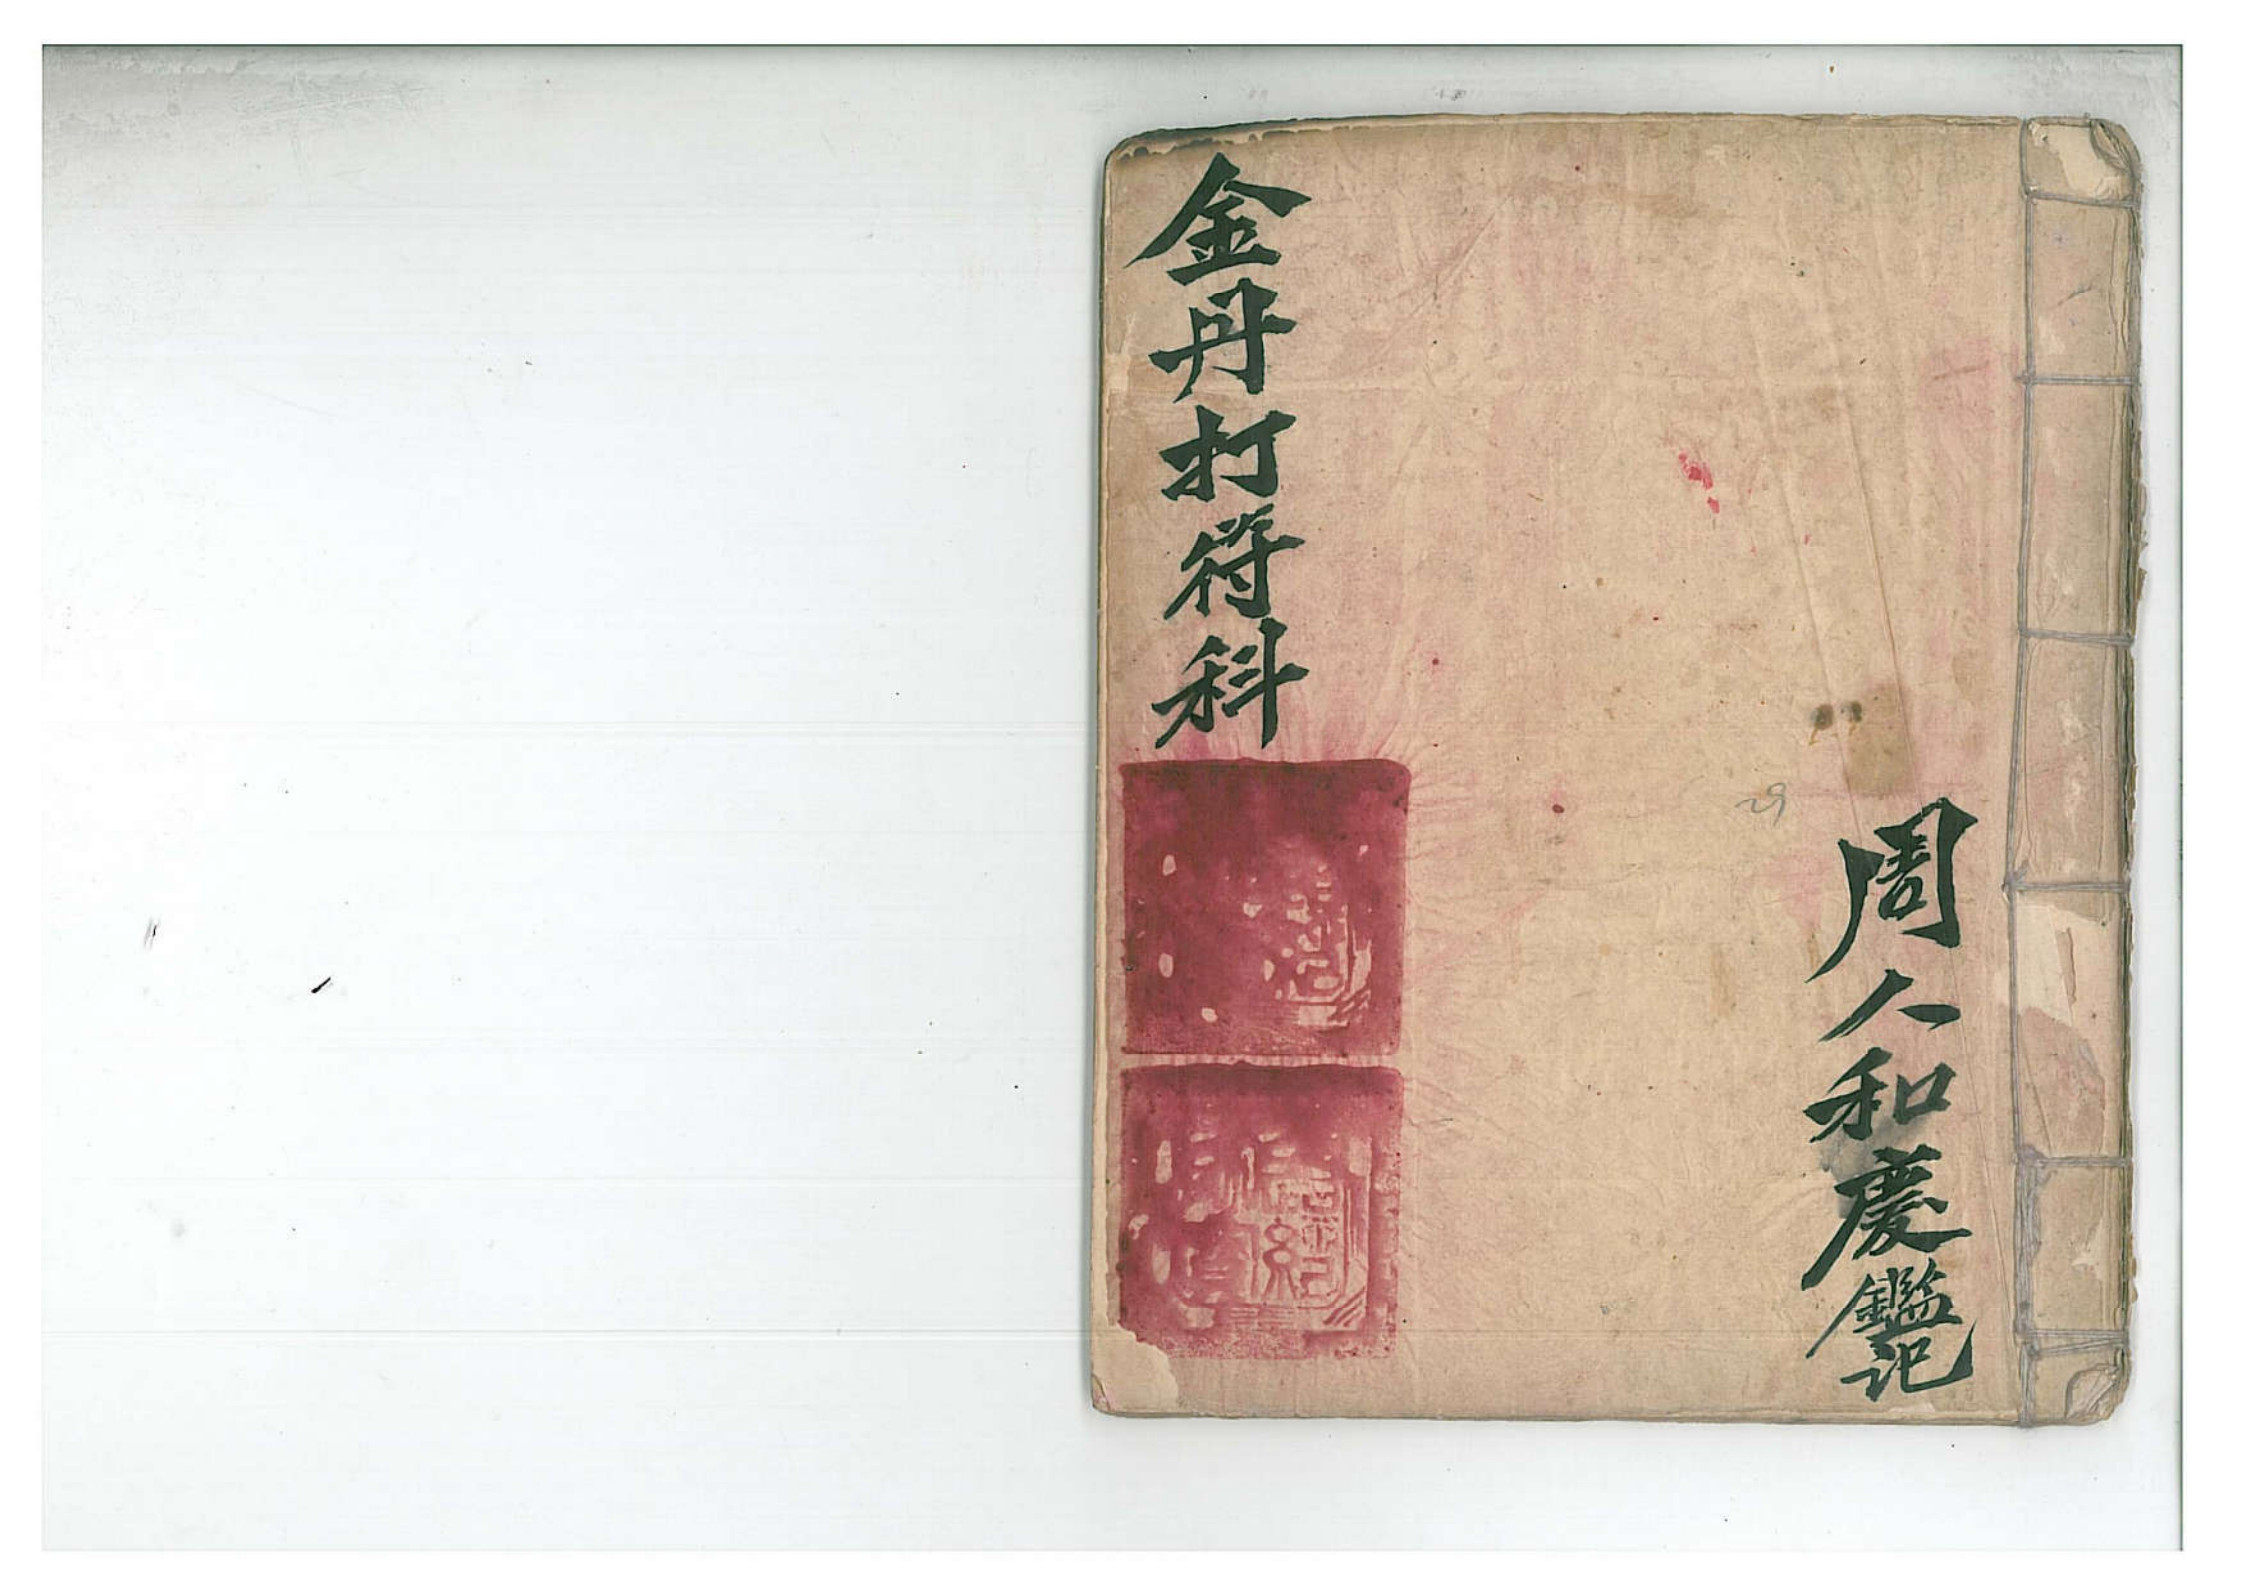 周人和慶鑑記
29
金丹打符科